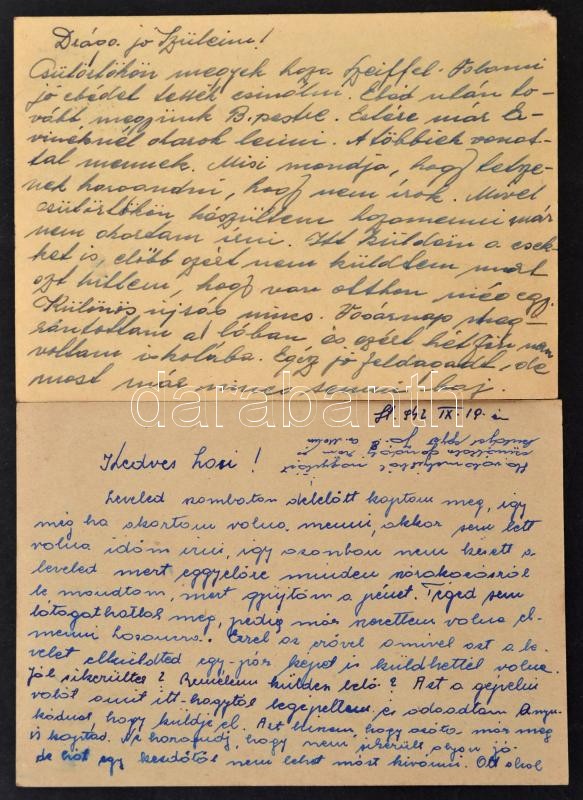 Drága jó Szüleim!
Csütörtökön megyek haza Tessék
jó ebédet tessék csinálni. Ebéd után to-
vább megyünk B.pestre. Estére már Er-
vinéknél akarok lenni. A többiek vonat-
tal mennek. Misi mondja, hogy tetsze-
nek haragudni, hogy nem írok. Mivel
csütörtökön készültem hazamenni már
nem akartam írni. Itt küldöm a csek-
ket is, előbb azért nem küldtem mert
azt hittem, hogy van otthon még egy.
Különös újság nincs. Vasárnap meg-
rántottam a lábam és ezért hétfőn nem
voltam iskolába. Egész jó feldagadt, de
most már nincs semmi baj.
darabanth
942 IX. 19-én
Kedves Laci!
Leveled szombaton délelőtt kaptam meg, így
még ha akartam volna menni, akkor sem lett
volna időm írni, így azonban nem késett a
leveled mert eggyelőre minden szórakozásról
le mondtam, mert gyűjtöm a pénzt. Téged sem
látogathatlak meg, pedig már szerettem volna el-
menni Losoncra. Ezzel az erővel amivel ezt a le-
velet elküldted egy-pár képet is küldhettél volna.
Jól sikerültek? Remélem külden belő? Azt a gépelni
valót amit itt-hagytál legépeltem, és odaadtam Anyu-
kádnak, hogy küldje el. Azt hiszem, hogy azóta már meg
is kaptad. Ne haragudj, hogy nem sikerült olyan jó-
de hát egy kezdőtől nem lehet mást kívánni. Ott ahol